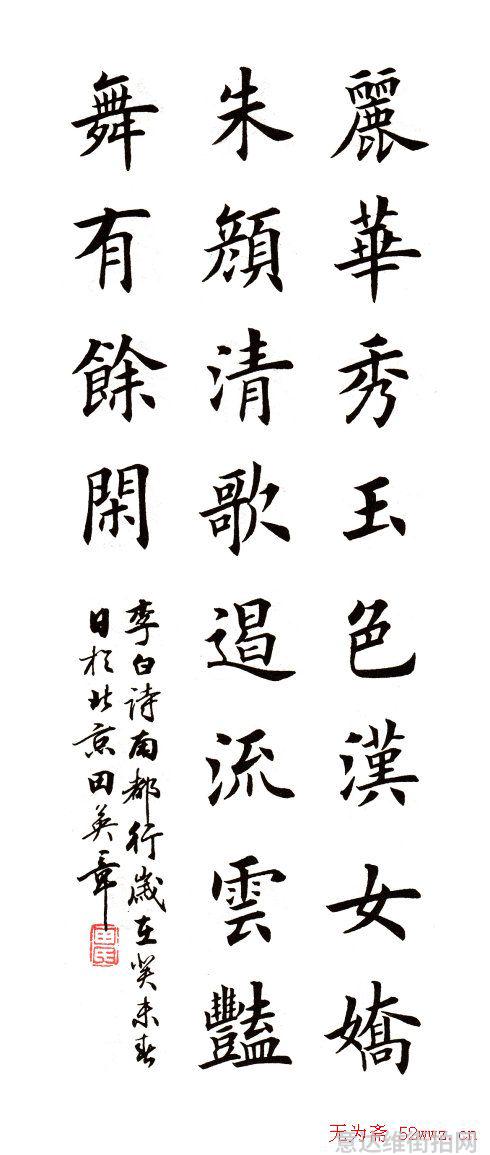 麗華秀玉色漢女嬌
朱顔清歌遏流雲豔
舞有餘閑
李白诗南都行歲在癸未春
日於北京田英章
无为斋 52wwz.cn
意达维街拍网